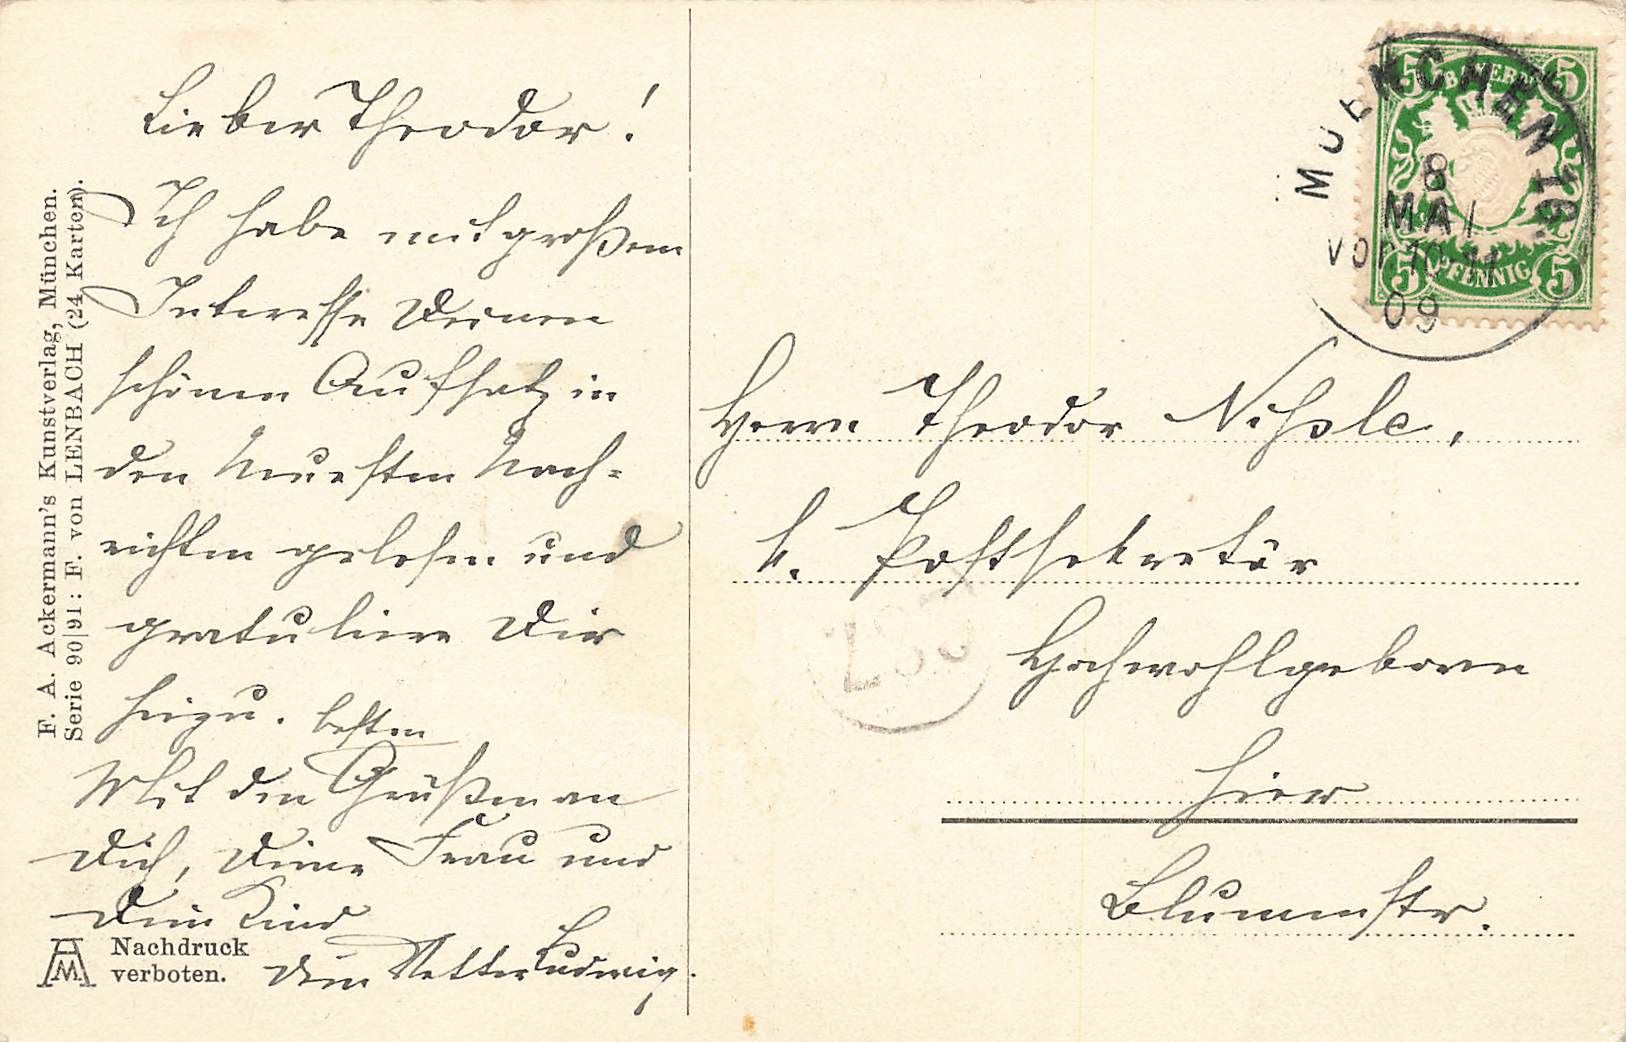 Lieber Theodor!
Ich habe mit großem
Interesse Deinen
schönen Aufsatz in
den Neuesten Nach-
richten gelesen und
gratuliere Dir
hiezu.
Mit den besten Grüßen an
Dich, Deine Frau und
Dein Kind
Dein Vetter Ludwig.
F. A. Ackermann's Kunstverlag, München.
Serie 90|91: F. von LENBACH (24 Karten).
Nachdruck
verboten.
BAYERN
5 5
5 PFENNIG 5
MUENCHEN 16.
8
MAI
VOR. 10-11
09
Herrn Theodor
k. Postsekretär
Hochwohlgeboren
hier
Blumenstr.